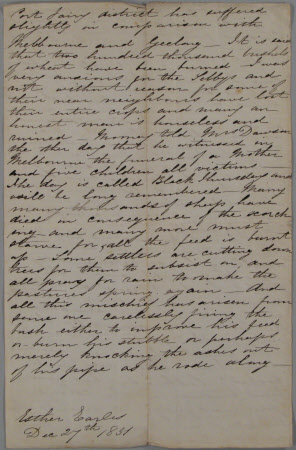 Port Fairy district has suffered
slightly in comparison with
Melbourne and Geelong — It is said
that two hundred thousand bushels
of wheat have been burned I was
very anxious for the
not without reason for some of
their near neighbours have lost
their entire crops and many an
honest man is houseless and
ruined told Mrs Dawson
the other day that he witnessed in
Melbourne the funeral of a Mother
and five children all victims
The day is called Black Thursday and
will be long remembered — Many
many thousands of sheep have
died in consequence of the scorch
ing and many more must
starve for all the feed is burnt
up — Some settlers are cutting down
trees for them to subsist on and
all pray for rain to make the
pastures spring again — And
all this mischief has arisen from
some one carelessly firing the
bush either to improve his feed
or burn his stubble or perhaps
merely knocking the ashes out
of his pipe as he rode along —
Esther Earles
Dec 27th 1851